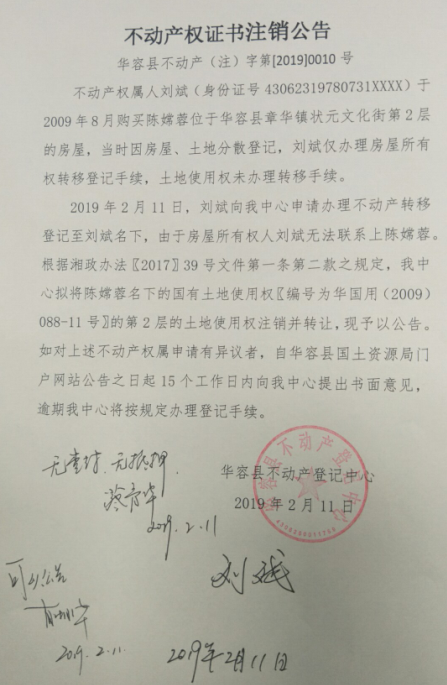 不动产权证书注销公告
华容县不动产（注）字第[2019]0010 号
不动产权属人刘斌（身份证号 43062319780731XXXX）于
2009 年 8 月购买陈嫦蓉位于华容县章华镇状元文化街第 2 层
的房屋，当时因房屋、土地分散登记，刘斌仅办理房屋所有
权转移登记手续，土地使用权未办理转移手续。
2019 年 2 月 11 日，刘斌向我中心申请办理不动产转移
登记至刘斌名下，由于房屋所有权人刘斌无法联系上陈嫦蓉。
根据湘政办法〖2017〗39 号文件第一条第二款之规定，我中
心拟将陈嫦蓉名下的国有土地使用权〖编号为华国用（2009）
088-11 号〗的第 2 层的土地使用权注销并转让，现予以公告。
如对上述不动产权属申请有异议者，自华容县国土资源局门
户网站公告之日起 15 个工作日内向我中心提出书面意见，
逾期我中心将按规定办理登记手续。
无查封、无抵押
华容县不动产登记中心
2019 年 2 月 11 日
2019.2.11
刘斌
可以公告
2019.2.11
2019年2月11日
华容县不动产登记中心